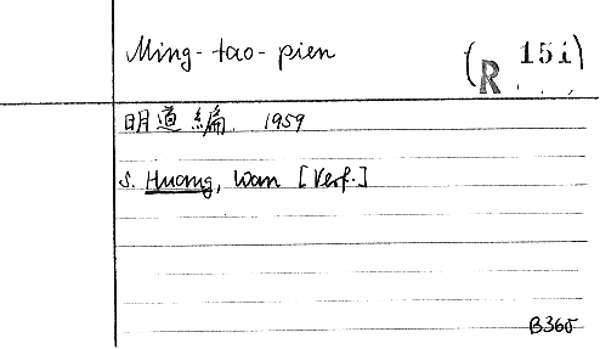 Ming-tao-pien
(R 15i)
明道編. 1959
s. Huang, Wan [Verf.]
B365